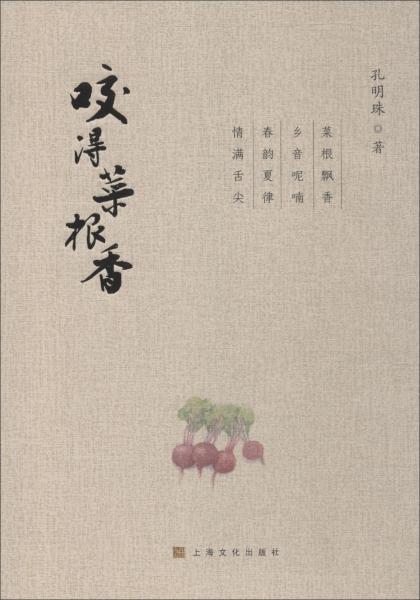 孔明珠◎著
菜根飘香
乡音呢喃
春韵夏律
情满舌尖
咬得菜根香
上海文化出版社